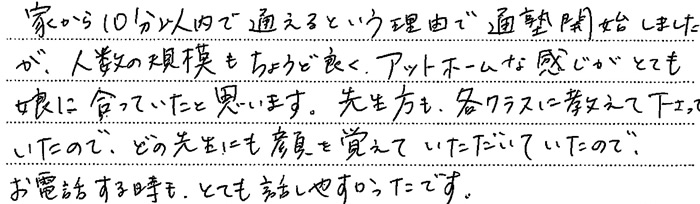 家から10分以内で通えるという理由で通塾開始しました
が、人数の規模もちょうど良く、アットホームな感じがとても
娘に合っていたと思います。先生方も、各クラスに教えて下さって
いたので、どの先生にも顔を覚えていただいていたので、
お電話する時も、とても話しやすかったです。